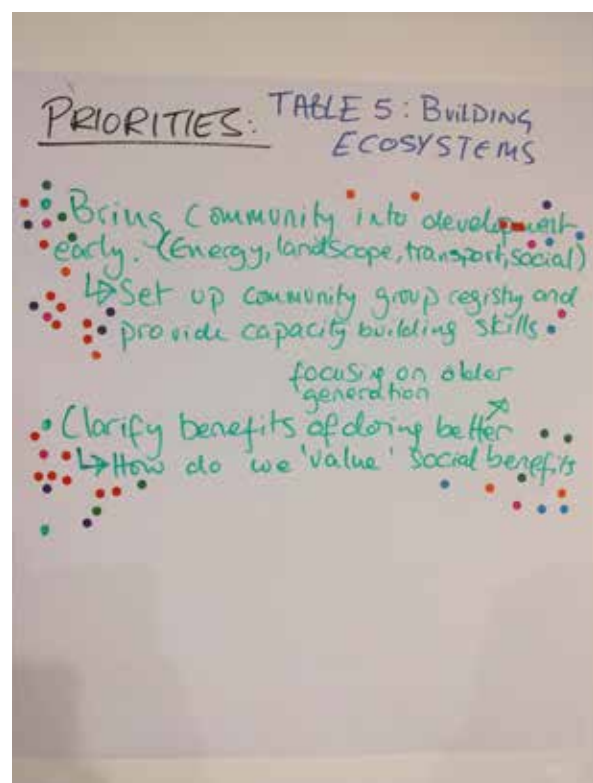 PRIORITIES: TABLE 5: BUILDING
ECOSYSTEMS
• Bring Community into development
early. (Energy, landscape, transport, social)
↳ Set up community group registry and
provide capacity building skills
focusing on older
generation
• Clarify benefits of doing better
↳ How do we 'value' social benefits